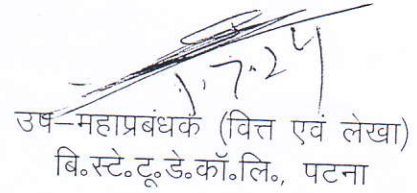 1.7.24
उप–महाप्रबंधक (वित्त एवं लेखा)
बि०स्टे०टू०डे०कॉ०लि०, पटना